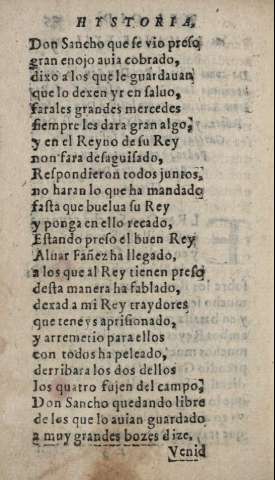 HISTORIA,
Don Sancho que se vio preso
gran enojo auia cobrado,
dixo a los que le guardauan
que lo dexen yr en saluo,
farales grandes mercedes
siempre les dara gran algo,
y en el Reyno de su Rey
non fara desaguisado,
Respondieron todos juntos,
no haran lo que ha mandado
fasta que buelua su Rey
y ponga en ello recado,
Estando preso el buen Rey
Aluar Fañez ha llegado,
a los que al Rey tienen preso
desta manera ha fablado,
dexad a mi Rey traydores
que teneys aprisionado,
y arremetio para ellos
con todos ha peleado,
derribara los dos dellos
los quatro fujen del campo,
Don Sancho quedando libre
de los que lo auian guardado
a muy grandes bozes dize,
Venid